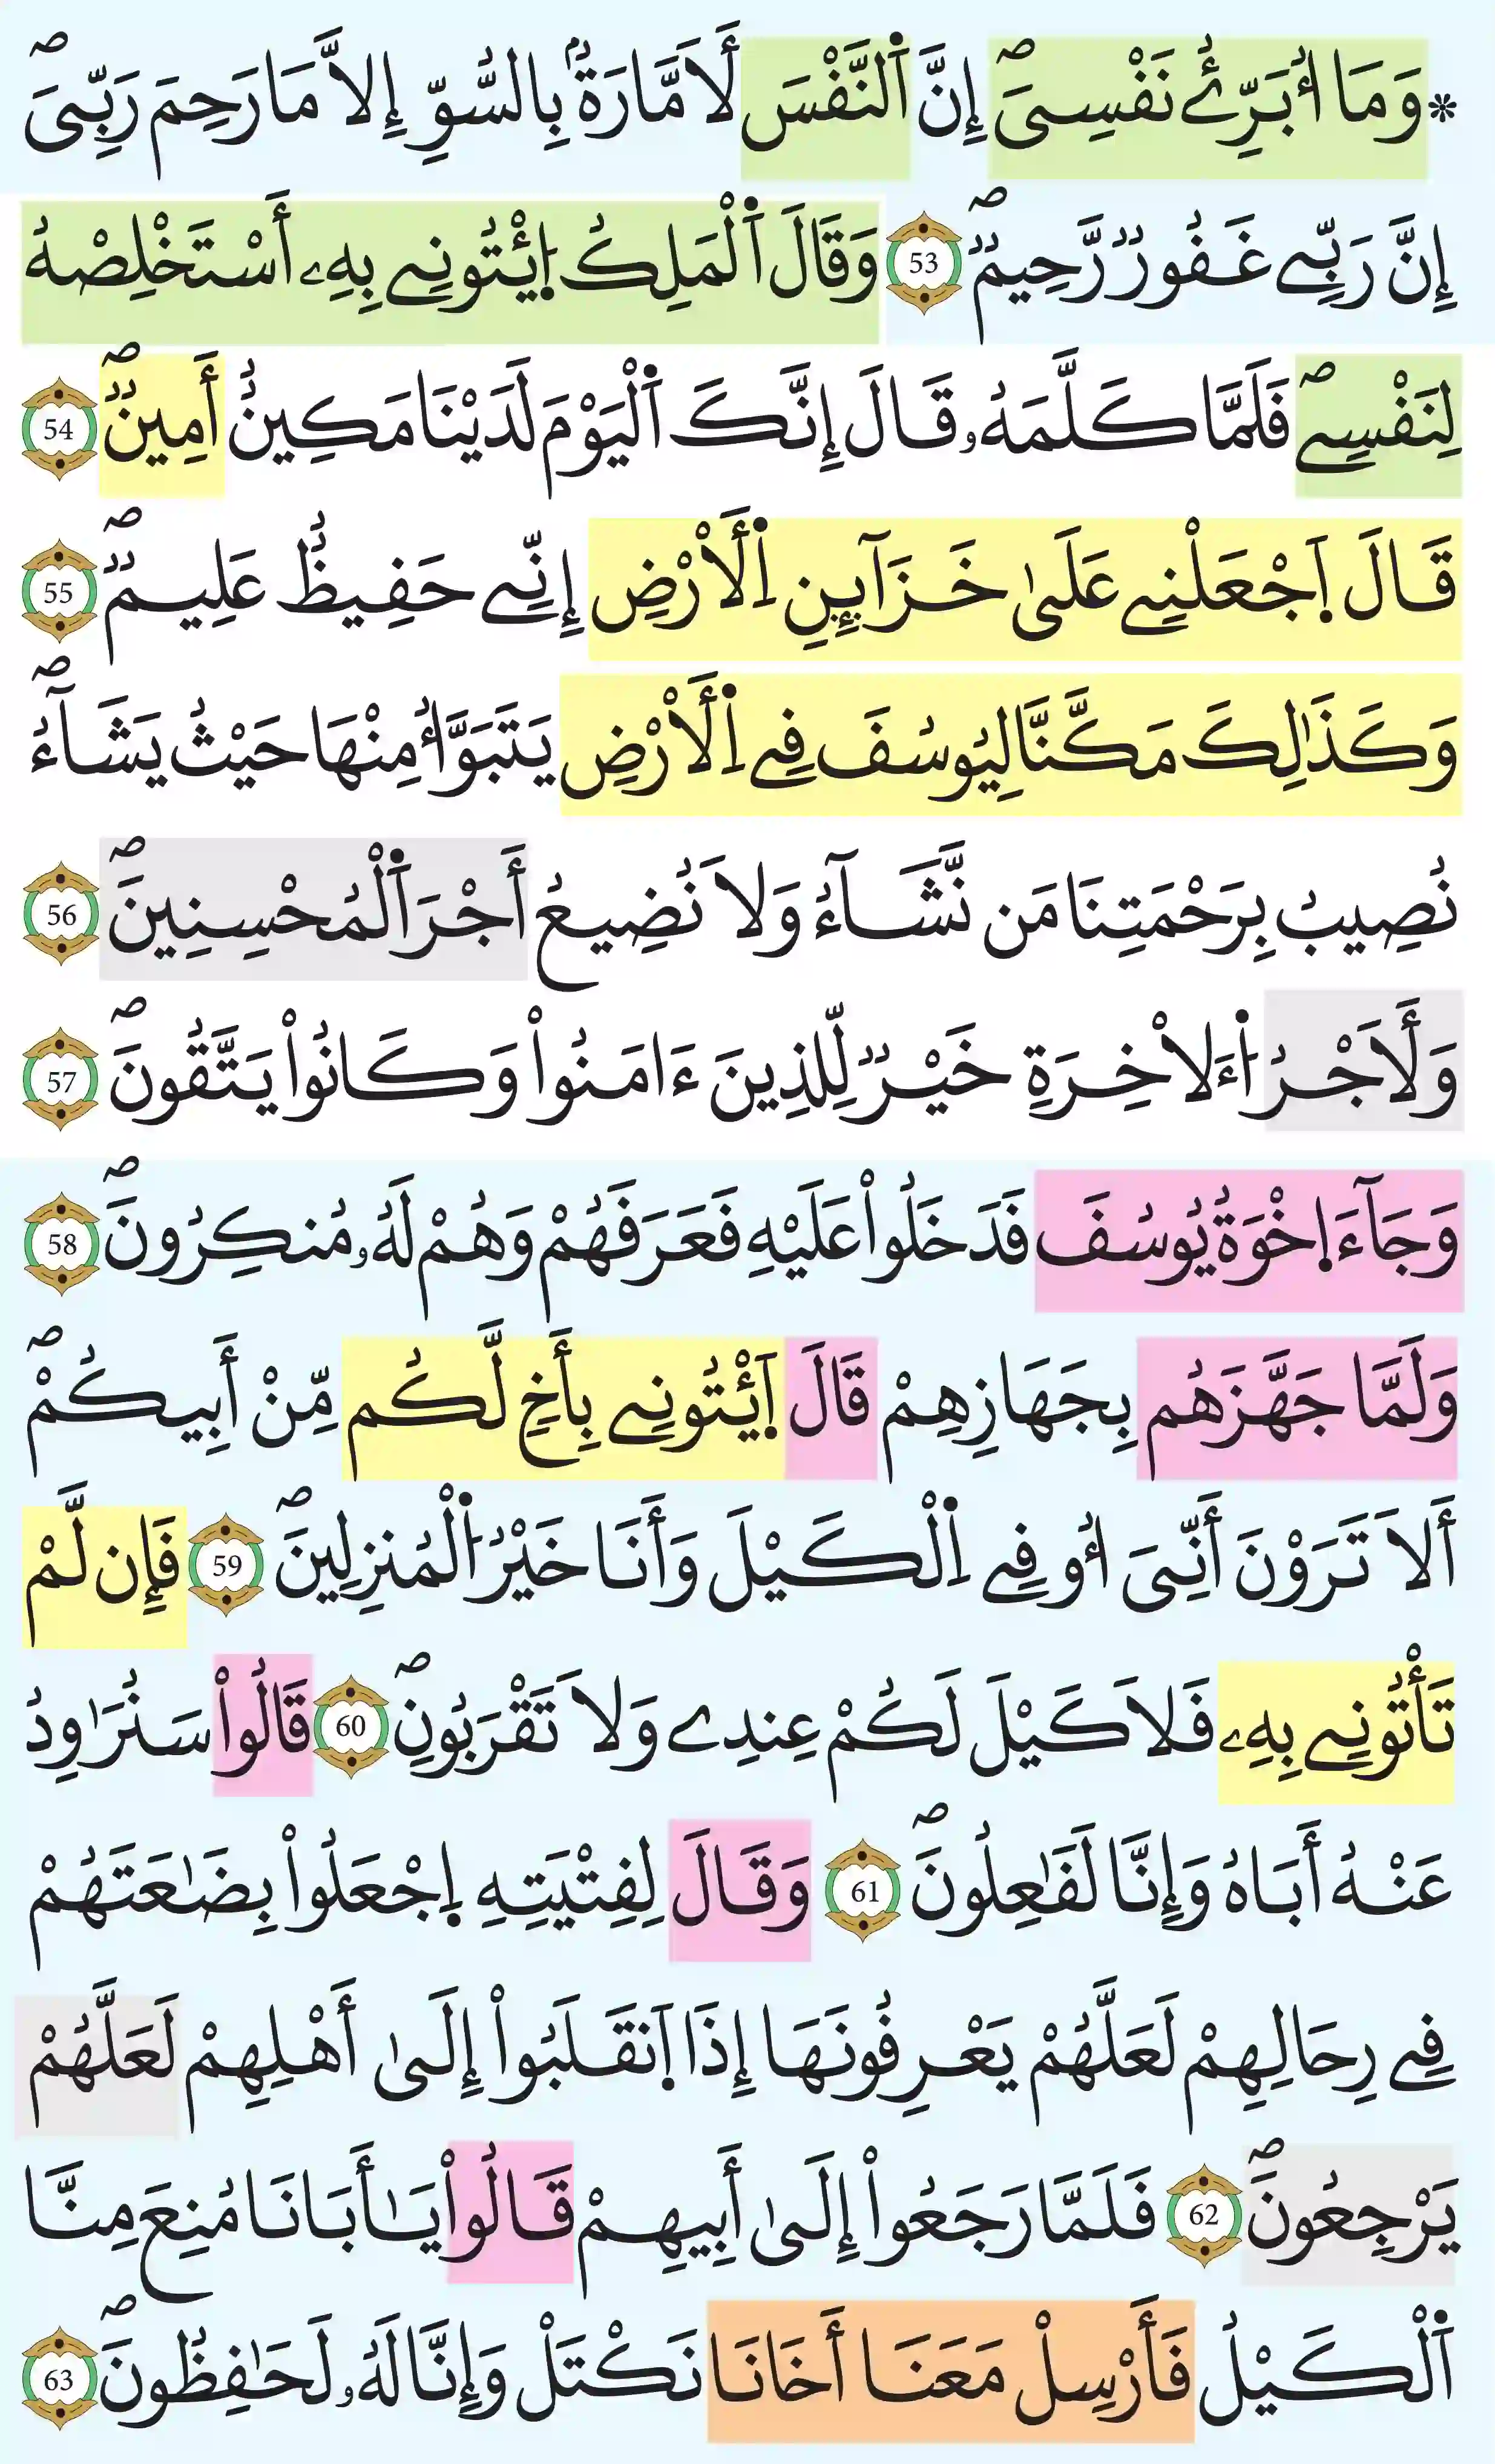 * وَمَا أُبَرِّئُ نَفْسِىَۖ إِنَّ اَ۬لنَّفْسَ لَأَمَّارَةُۢ بِالسُّوِّ إِلَّا مَا رَحِمَ رَبِّىَۖ
إِنَّ رَبِّے غَفُورٌ رَّحِيمٌۖ 53 وَقَالَ اَ۬لْمَلِكُ اُ۪يْتُونِے بِهِۦ أَسْتَخْلِصْهُ
لِنَفْسِےۖ فَلَمَّا كَلَّمَهُۥ قَالَ إِنَّكَ اَ۬لْيَوْمَ لَدَيْنَا مَكِينٌ أَمِينٌۖ 54
قَالَ اَ۪جْعَلْنِے عَلَىٰ خَزَآئِنِ اِ۬لْأَرْضِ إِنِّے حَفِيظٌ عَلِيمٌۖ 55
وَكَذَٰلِكَ مَكَّنَّا لِيُوسُفَ فِے اِ۬لْأَرْضِ يَتَبَوَّأُ مِنْهَا حَيْثُ يَشَآءُۖ
نُصِيبُ بِرَحْمَتِنَا مَن نَّشَآءُ وَلَا نُضِيعُ أَجْرَ اَ۬لْمُحْسِنِينَۖ 56
وَلَأَجْرُ اُ۬ءَلْاخِرَةِ خَيْرٌ لِّلذِينَ ءَامَنُواْ وَكَانُواْ يَتَّقُونَۖ 57
وَجَآءَ اِ۪خْوَةُ يُوسُفَ فَدَخَلُواْ عَلَيْهِ فَعَرَفَهُمْ وَهُمْ لَهُۥ مُنكِرُونَۖ 58
وَلَمَّا جَهَّزَهُم بِجَهَازِهِمْ قَالَ اَ۪ئْتُونِے بِأَخٍ لَّكُم مِّنْ أَبِيكُمْۖ
أَلَا تَرَوْنَ أَنِّىَ أُوفِے اِ۬لْكَيْلَ وَأَنَا خَيْرُ اُ۬لْمُنزِلِينَۖ 59 فَإِن لَّمْ
تَأْتُونِے بِهِۦ فَلَا كَيْلَ لَكُمْ عِندِے وَلَا تَقْرَبُونِۖ 60 قَالُواْ سَنُرَٰوِدُ
عَنْهُ أَبَاهُ وَإِنَّا لَفَٰعِلُونَۖ 61 وَقَالَ لِفِتْيَتِهِ اِ۪جْعَلُواْ بِضَٰعَتَهُمْ
فِے رِحَالِهِمْ لَعَلَّهُمْ يَعْرِفُونَهَا إِذَا اَ۪نقَلَبُواْ إِلَىٰ أَهْلِهِمْ لَعَلَّهُمْ
يَرْجِعُونَۖ 62 فَلَمَّا رَجَعُواْ إِلَىٰ أَبِيهِمْ قَالُواْ يَٰأَبَانَا مُنِعَ مِنَّا
اَ۬لْكَيْلُ فَأَرْسِلْ مَعَنَا أَخَانَا نَكْتَلْ وَإِنَّا لَهُۥ لَحَٰفِظُونَۖ 63